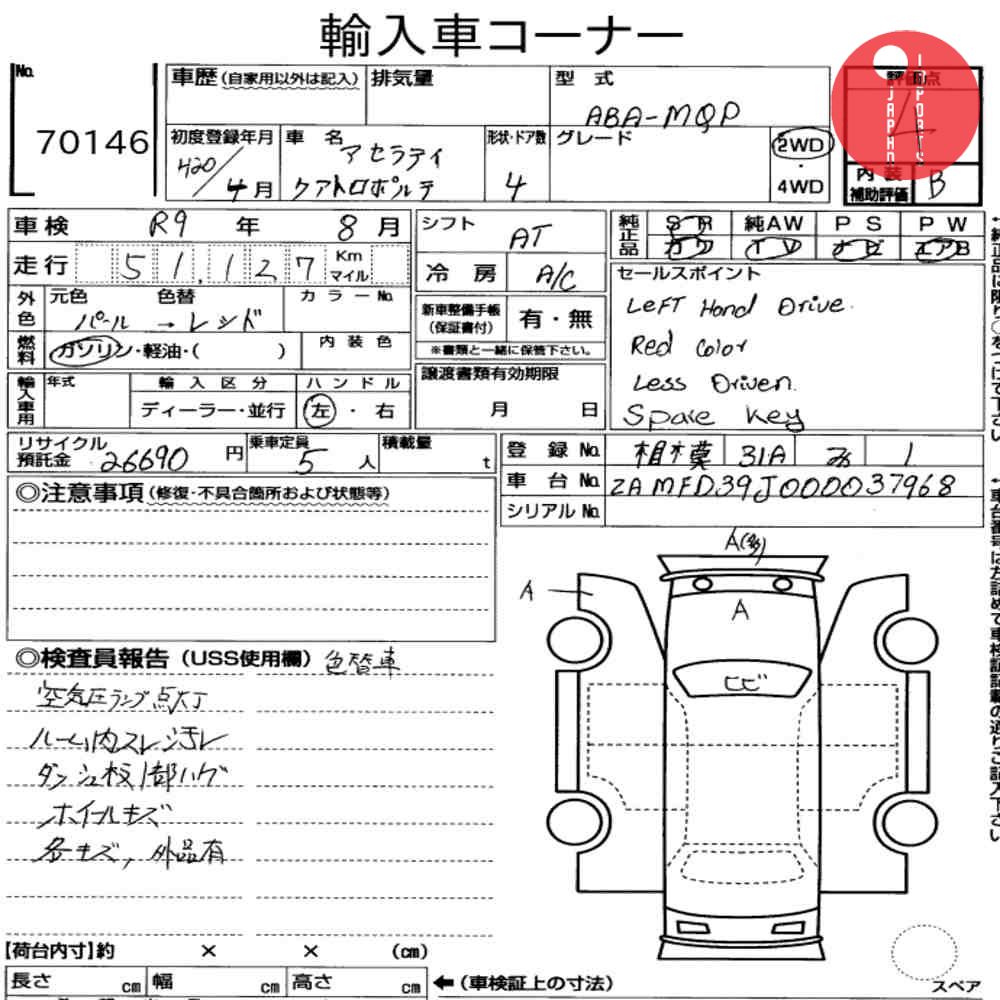 輸入車コーナー
No.
70146
車歴 (自家用以外は記入)
排気量
型 式
ABA-MQP
評価点
4
JAPAN
IMPORTS
初度登録年月
H20/4月
車 名
マセラティ
クアトロポルテ
形状・ドア数
4
グレード
2WD
・
4WD
内 装
補助評価
B
車検 R9 年 8 月
走行 51,127 Km マイル
シフト AT
冷 房 A/C
純正品
SR 純AW PS PW
カワ TV ナビ エアB
外色
元色 色替 カラーNo.
パール → レッド
燃料
ガソリン・軽油・( )
内 装 色
新車整備手帳
(保証書付)
有・無
※書類と一緒に保管下さい。
セールスポイント
Left Hand Drive.
Red Color
Less Driven.
Spare Key
輸入車用
年式
輸 入 区 分
ディーラー・並行
ハ ン ド ル
左・右
譲渡書類有効期限
月 日
リサイクル
預託金 26690 円
乗車定員 5 人
積載量 t
登 録 No. 相模 31A み 1
車 台 No. ZAMFD39J000037968
シリアル No.
◎注意事項 (修復・不具合箇所および状態等)
◎検査員報告 (USS使用欄) 色替車
空気圧ランプ点灯
ルーム内スレ汚レ
ダッシュ板1部ハゲ
ホイールキズ
各キズ, 外品有
A(多)
A
A
ヒビ
【荷台内寸】約 × × (cm)
長さ cm 幅 cm 高さ cm
←(車検証上の寸法)
スペア